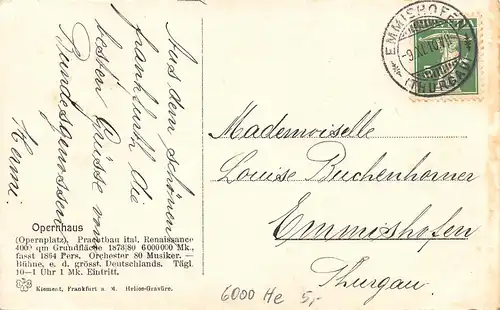 Aus dem schönen
Frankfurth die
besten Grüsse von
Bundesgenossen
Opernhaus
(Opernplatz). Prachtbau ital. Renaissance
4000 qm Grundfläche 1873|80 6000000 Mk.,
fasst 1864 Pers. Orchester 80 Musiker. —
Bühne, e. d. grösst. Deutschlands. Tägl.
10—1 Uhr 1 Mk. Eintritt.
Klement, Frankfurt a. M. Helios-Gravüre.
EMMISHOFEN
(THURGAU)
Mademoiselle
Louise Buchenhorner
Emmishofen
Thurgau.
6000 He 5,-